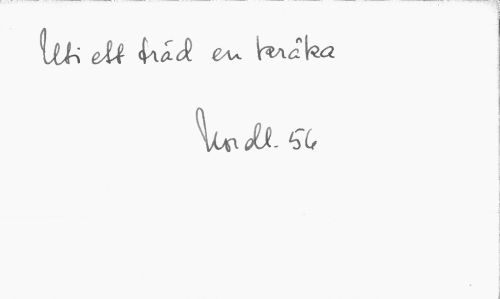 Uti ett träd en kråka
Nordl. 56